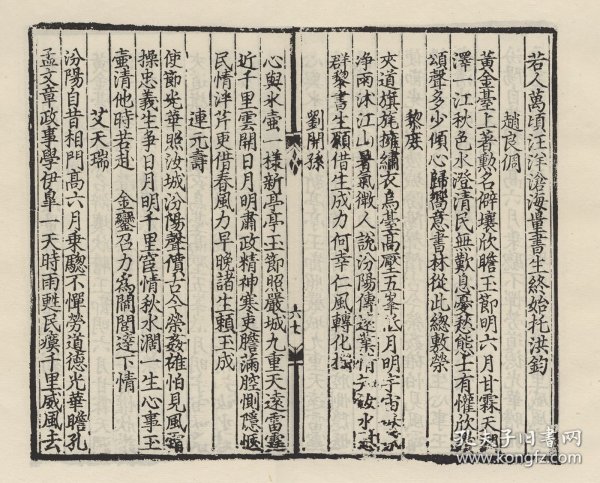 若人萬頃汪洋滄海量書生終始托洪鈞
趙良倜
黃金臺上著勳名僻壤欣瞻玉節明六月甘霖天
澤一江秋色水澄清民無歎息憂愁態士有懽欣
頌聲多少傾心歸嚮意書林從此總敷榮
黎庶
夾道旗旄擁繡衣烏臺高壓五峯 月明宇宙
净雨沐江山暑氣微人說汾陽傳 業
群黎書生願借生成力何幸仁風轉化
劉開孫
六七
心與氷壷一樣新亭亭玉節照嚴城九重天遠雷霆
近千里雲開日月明肅政精神寒吏膽滿腔惻隱
民情泮芹更借春風力早晚諸生賴玉成
連元壽
使節光華照汝城汾陽聲價古今榮姦雄怕見風霜
操忠義生爭日月明千里宦情秋水濶一生心事玉
壷清他時若赴　金鑾召力爲閭閻達下情
艾天瑞
汾陽自昔相門高六月乗驄不憚勞道德光華瞻孔
孟文章政事學伊臯一天時雨甦民瘼千里威風去
孔夫子旧书网